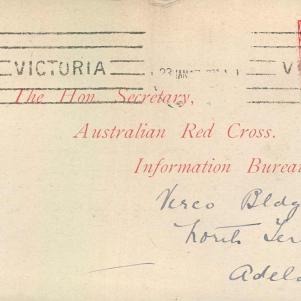 VICTORIA
23 JAN
V
The Hon. Secretary,
Australian Red Cross.
Information Burea
Verco Bldg
North Ter
Adela